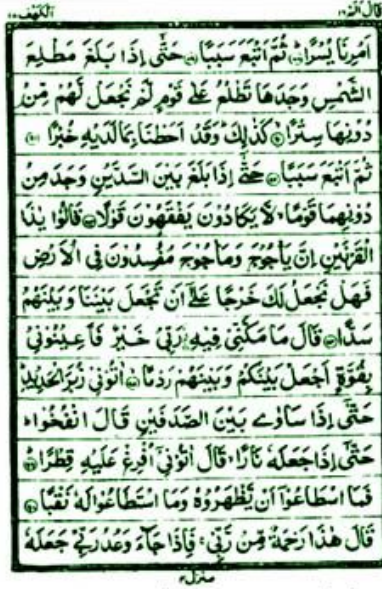 قال الم ١٦ الكهف ١٨
اَمْرِنَا يُسْرًا ۞ ثُمَّ اَتْبَعَ سَبَبًا ۞ حَتّٰٓى اِذَا بَلَغَ مَطْلِعَ
الشَّمْسِ وَجَدَهَا تَطْلُعُ عَلٰى قَوْمٍ لَّمْ نَجْعَلْ لَّهُمْ مِّنْ
دُوْنِهَا سِتْرًا ۞ كَذٰلِكَ وَقَدْ اَحَطْنَا بِمَا لَدَيْهِ خُبْرًا ۞
ثُمَّ اَتْبَعَ سَبَبًا ۞ حَتّٰٓى اِذَا بَلَغَ بَيْنَ السَّدَّيْنِ وَجَدَ مِنْ
دُوْنِهِمَا قَوْمًا لَّا يَكَادُوْنَ يَفْقَهُوْنَ قَوْلًا ۞ قَالُوْا يٰذَا
الْقَرْنَيْنِ اِنَّ يَاْجُوْجَ وَمَاْجُوْجَ مُفْسِدُوْنَ فِى الْاَرْضِ
فَهَلْ نَجْعَلُ لَكَ خَرْجًا عَلٰٓى اَنْ تَجْعَلَ بَيْنَنَا وَبَيْنَهُمْ
سَدًّا ۞ قَالَ مَا مَكَّنِّىْ فِيْهِ رَبِّىْ خَيْرٌ فَاَعِيْنُوْنِىْ
بِقُوَّةٍ اَجْعَلْ بَيْنَكُمْ وَبَيْنَهُمْ رَدْمًا ۞ اٰتُوْنِىْ زُبَرَ الْحَدِيْدِ
حَتّٰٓى اِذَا سَاوٰى بَيْنَ الصَّدَفَيْنِ قَالَ انْفُخُوْا
حَتّٰٓى اِذَا جَعَلَهٗ نَارًا قَالَ اٰتُوْنِىْٓ اُفْرِغْ عَلَيْهِ قِطْرًا ۞
فَمَا اسْطَاعُوْٓا اَنْ يَّظْهَرُوْهُ وَمَا اسْتَطَاعُوْا لَهٗ نَقْبًا ۞
قَالَ هٰذَا رَحْمَةٌ مِّنْ رَّبِّىْ فَاِذَا جَآءَ وَعْدُ رَبِّىْ جَعَلَهٗ
منزل ٤